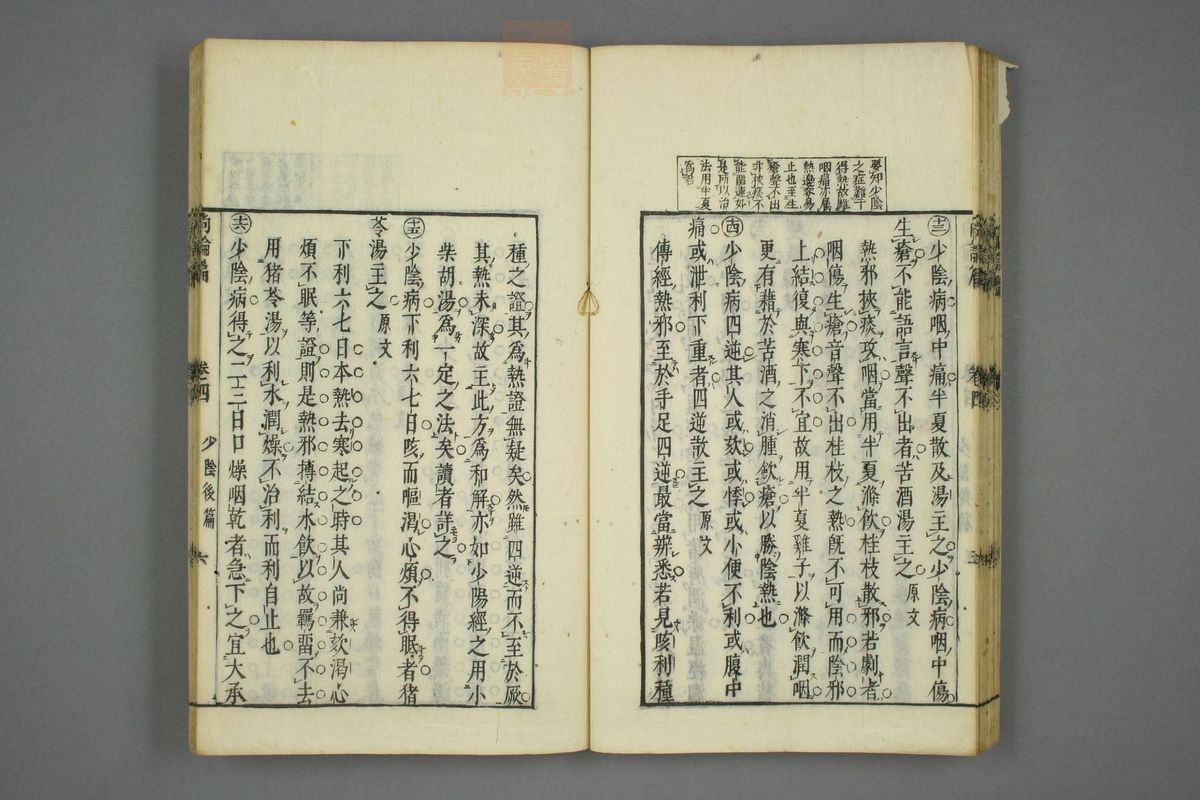 要知少陰
之症雖丁
得熱故雖
咽痛亦屬
熱邊容易
止也至生
瘡聲不出
非挾痰不
能留連如
是所以治
法用半夏
爲君
尚論篇
卷四
㊂ 少陰病咽中痛半夏散及湯主之少陰病咽中傷
生瘡不能語言聲不出者苦酒湯主之 原文
熱邪挾痰攻咽當用半夏滌飲桂枝散邪若劇者
咽傷生瘡音聲不出桂枝之熱既不可用而陰邪
上結復與寒下不宜故用半夏雞子以滌飲潤咽
更有藉於苦酒之消腫歛瘡以勝陰熱也
十四 少陰病四逆其人或欬或悸或小便不利或腹中
痛或泄利下重者四逆散主之 原文
傳經熱邪至於手足四逆最當辨悉若見咳利種
種之證其爲熱證無疑矣然雖四逆而不至於厥
其熱未深故主此方爲和解亦如少陽經之用小
柴胡湯爲一定之法矣讀者詳之
十五 少陰病下利六七日咳而嘔渴心煩不得眠者猪
苓湯主之 原文
下利六七日本熱去寒起之時其人尚兼欬渴心
煩不眠等證則是熱邪摶結水飲以故羈畱不去
用猪苓湯以利水潤燥不治利而利自止也
十六 少陰病得之二三日口燥咽乾者急下之宜大承
尚論篇
卷四
少陰後篇
六